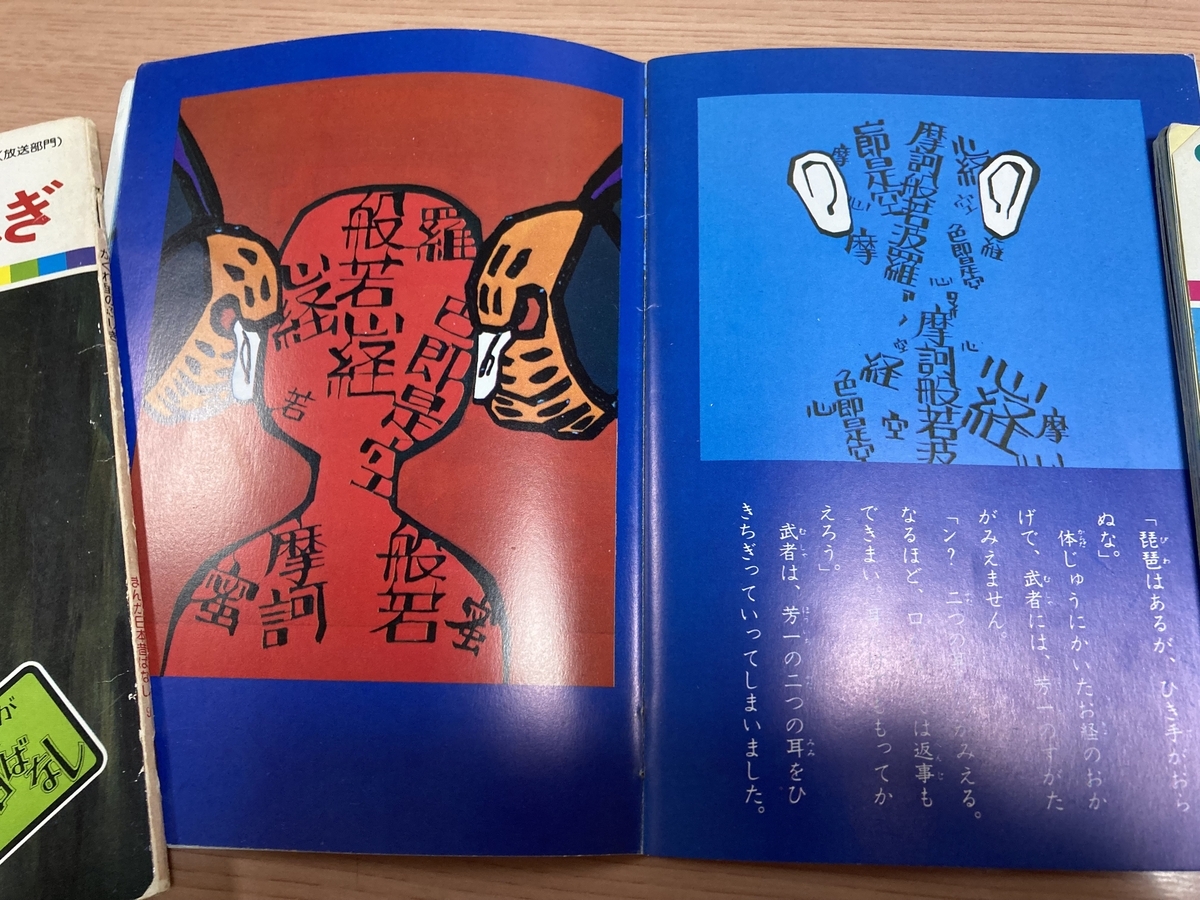 (放送部門)
ぎ
まんが日本昔ばなし
が
ばなし
般若心経
羅
心経
色即是空
若
摩訶
般若
蜜
蜜
節是
心
摩訶般若波羅
心経
摩
心
摩
色即是空
心
摩訶般若波
心
経
空
色即是空
心
心経
摩
「琵琶はあるが、ひき手がおら
ぬな」
体じゅうにかいたお経のおか
げで、武者には、芳一のすがた
がみえません。
「ン? 二つの がみえる。
なるほど、口 は返事も
できまい、 もってか
えろう」
武者は、芳一の二つの耳をひ
きちぎっていってしまいました。